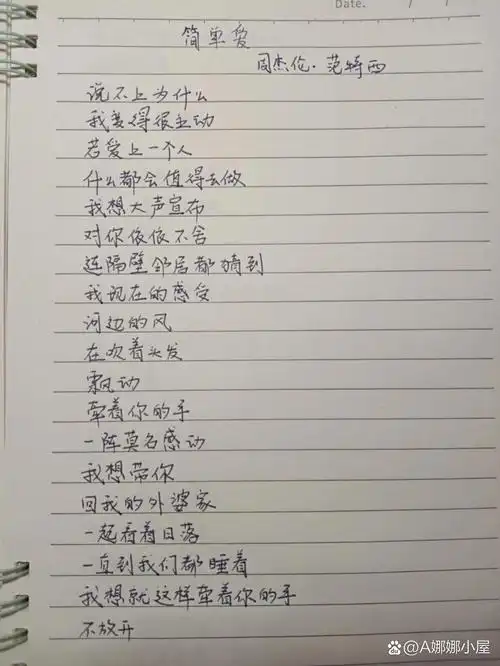 Date. / /
简单爱
周杰伦·范特西
说不上为什么
我变得很主动
若爱上一个人
什么都会值得去做
我想大声宣布
对你依依不舍
连隔壁邻居都猜到
我现在的感受
河边的风
在吹着头发
飘动
牵着你的手
一阵莫名感动
我想带你
回我的外婆家
一起看着日落
一直到我们都睡着
我想就这样牵着你的手
不放开
@A娜娜小屋